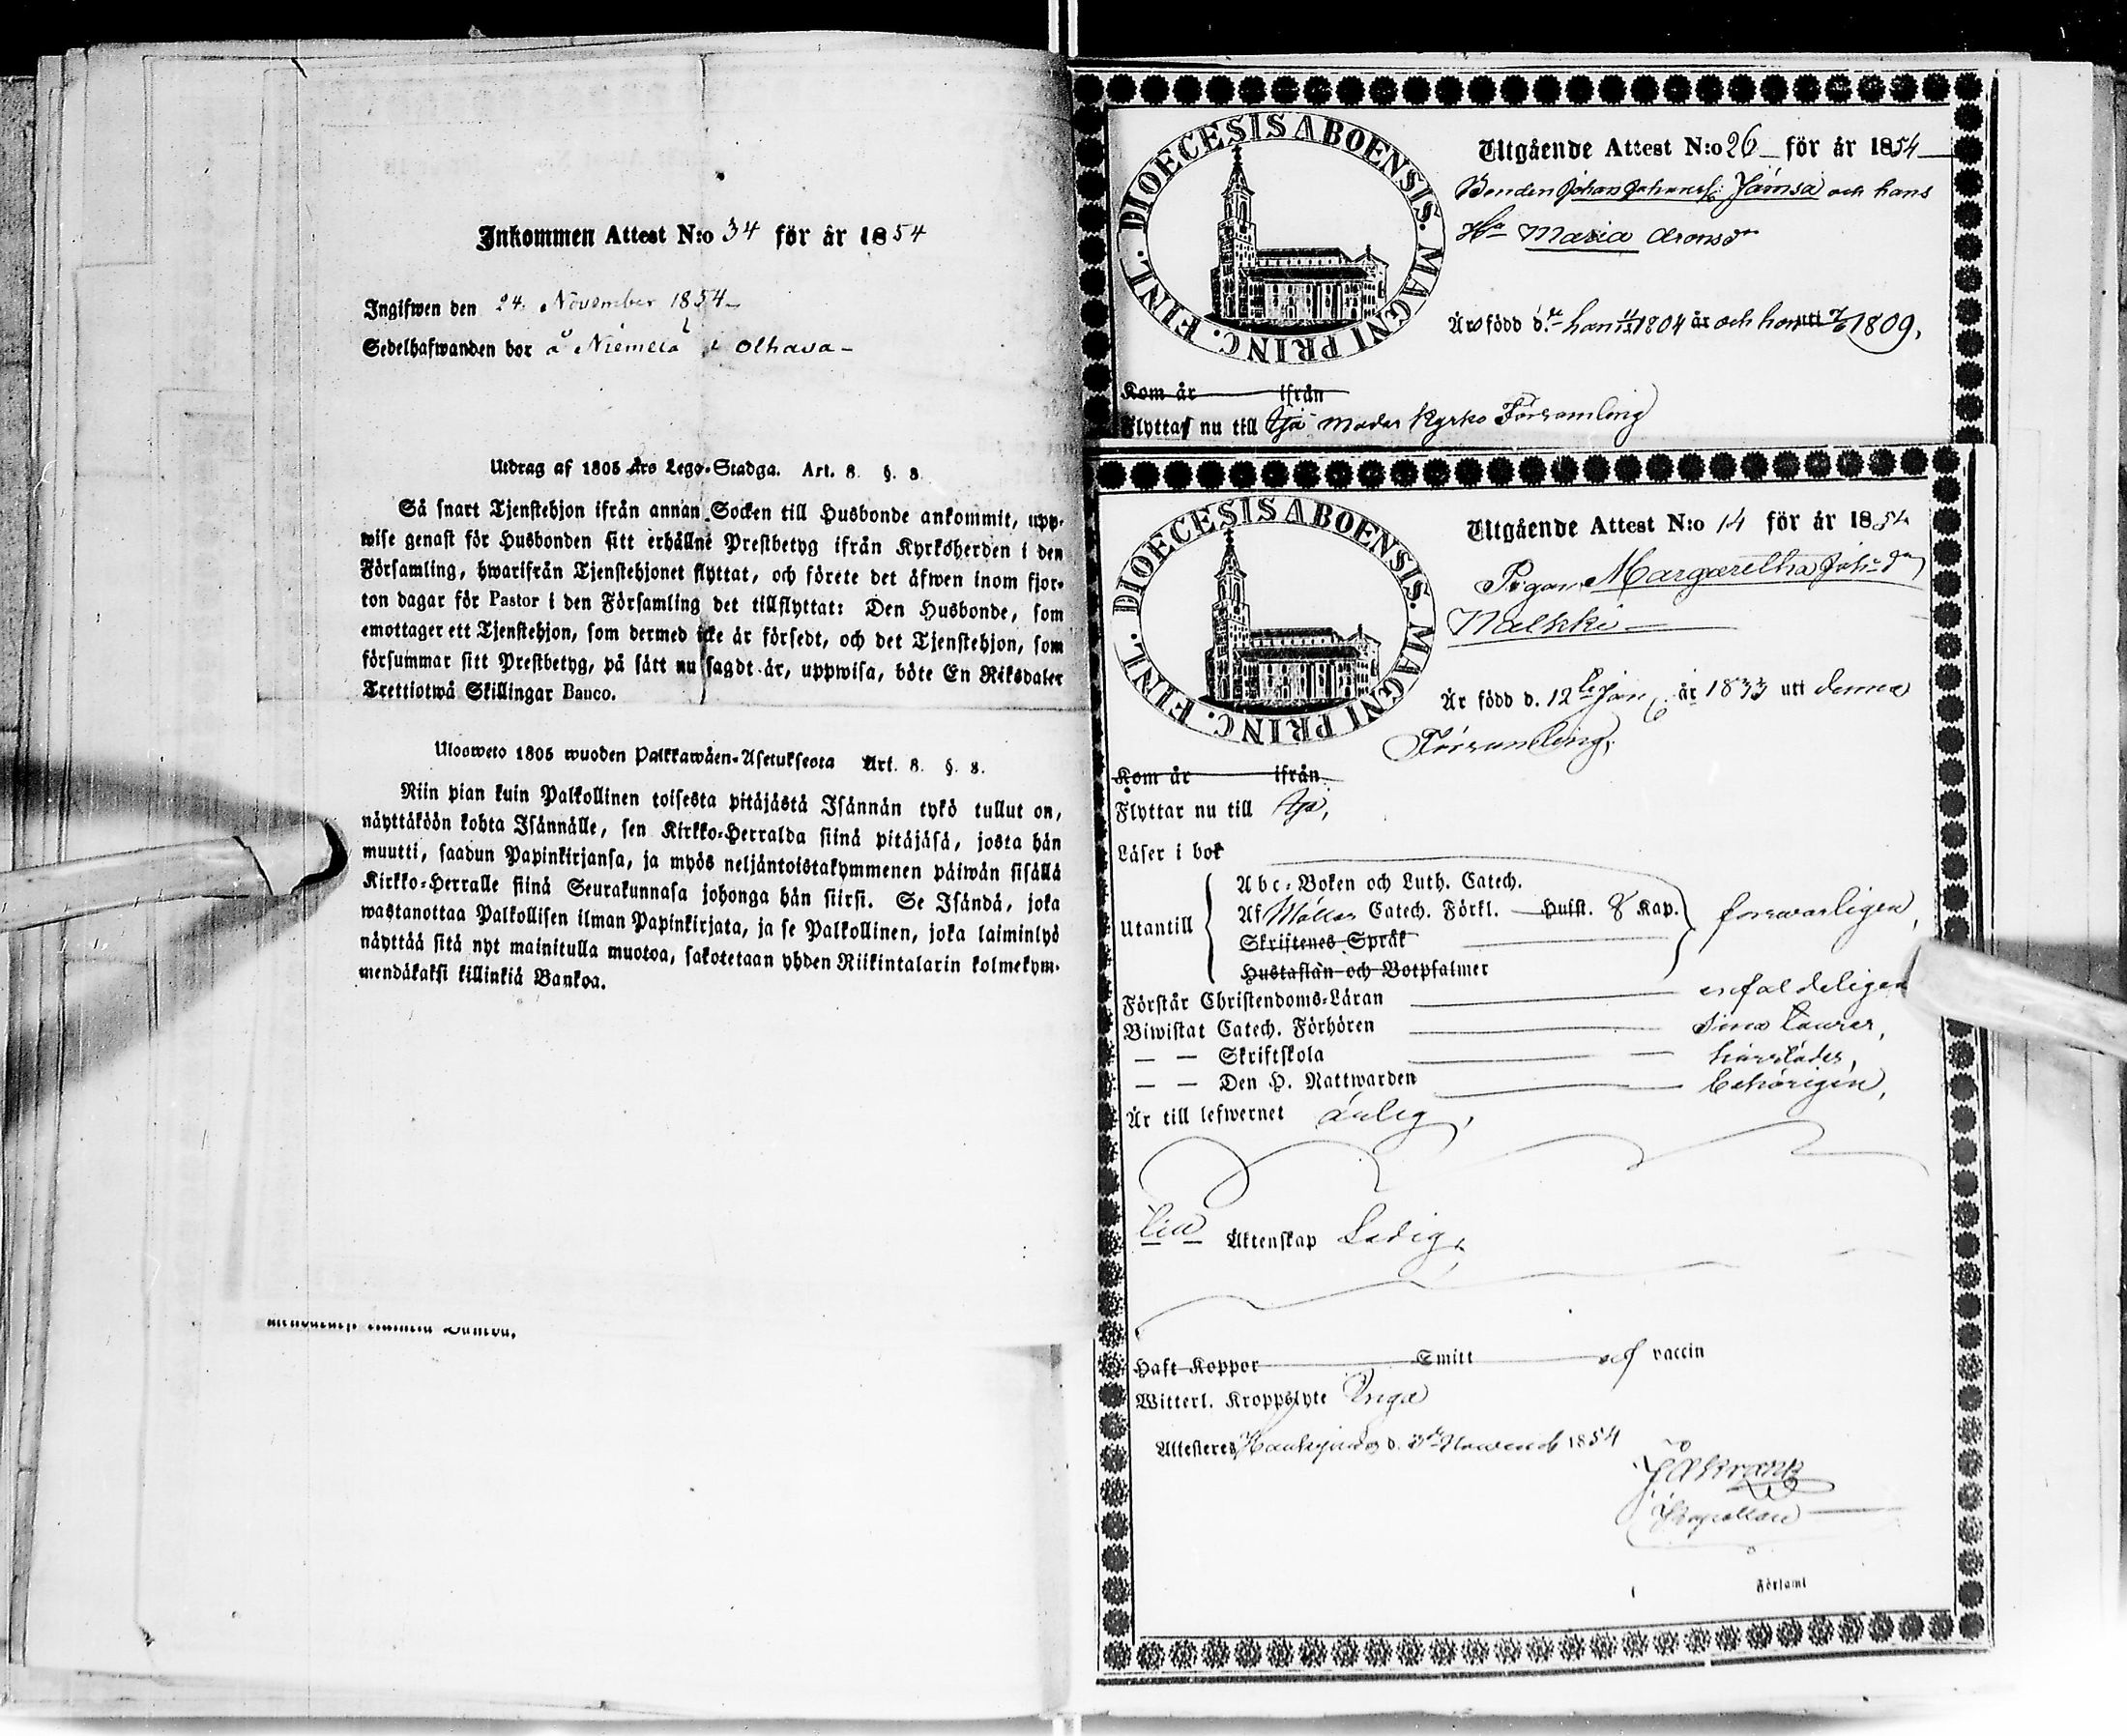 Inkommen Attest N:o 34 för år 1854
Ingifwen den 24. November 1854
Sedelhafwanden bor å Niemelä i Olhava
Utdrag af 1805 års Lego-Stadga. Art. 8. §. 8.
Så snart Tjenstehjon ifrån annan Socken till Husbonde ankommit, upp-
wise genast för Husbonden sitt erhållne Prestbetyg ifrån Kyrkoherden i den
Församling, hwarifrån Tjenstehjonet flyttat, och förete det äfwen inom fjor-
ton dagar för Pastor i den Församling det tillflyttat: Den Husbonde, som
emottager ett Tjenstehjon, som dermed icke är försedt, och det Tjenstehjon, som
försummar sitt Prestbetyg, på sätt nu sagdt är, uppwisa, böte En Riksdaler
Trettiotwå Skillingar Banco.
Ulosweto 1805 wuoden Palkkawäen-Asetuksesta Art. 8. §. 8.
Niin pian kuin Palkollinen toisesta pitäjästä Isännän tykö tullut on,
näyttäköön kohta Isännälle, sen Kirkko-Herralda siinä pitäjäsä, josta hän
muutti, saadun Papinkirjansa, ja myös neljäntoistakymmenen päiwän sisällä
Kirkko-Herralle siinä Seurakunnasa johonga hän siirsi. Se Isändä, joka
wastanottaa Palkollisen ilman Papinkirjata, ja se Palkollinen, joka laiminlyö
näyttää sitä nyt mainitulla muotoa, sakotetaan yhden Riikintalarin kolmekym-
mendäkaksi killinkiä Bankoa.
DIOECESIS ABOENSIS. MAGNI PRINC. FINL.
Utgående Attest N:o 26 för år 1854
Bonden Johan Johansf. Jämsä och hans
Hu Maria Aronsdr
född d. han 1804 och hon 1809.
Kom år ifrån
Flyttar nu till Ijo Moder Kyrko Församling
DIOECESIS ABOENSIS. MAGNI PRINC. FINL.
Utgående Attest N:o 14 för år 1854
Pigan Margaretha Johsdr
Malkki
Är född d. 12 Jan år 1833 utt denna
Församling.
Kom år ifrån
Flyttar nu till Ijo,
Läser i bok
Abc-Boken och Luth. Catech.
Utantill Af Möllers Catech. Förkl. Husst. 8 Kap. forswarligen,
Skriftenes Språk
Hustaflan och Botpsalmer
Förstår Christendoms-Läran enfaldeligen
Biwistat Catech. Förhören sina Laurer,
— — Skriftskola härstädes,
— — Den H. Nattwarden behörigen,
Är till lefwernet ärlig,
till Äktenskap Ledig.
Haft Koppor Smitt af vaccin
Witterl. Kroppslyte Inga
Attesteres Haukipudas d. 3 Novemb 1854
Kapellan
Församl